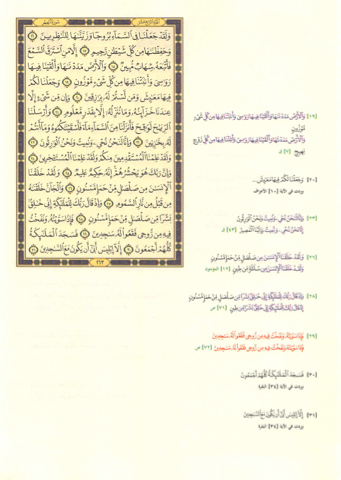 وَلَقَدْ جَعَلْنَا فِي ٱلسَّمَآءِ بُرُوجًا وَزَيَّنَّٰهَا لِلنَّٰظِرِينَ ١٦
وَحَفِظْنَٰهَا مِن كُلِّ شَيْطَٰنٍ رَّجِيمٍ ١٧ إِلَّا مَنِ ٱسْتَرَقَ ٱلسَّمْعَ
فَأَتْبَعَهُۥ شِهَابٌ مُّبِينٌ ١٨ وَٱلْأَرْضَ مَدَدْنَٰهَا وَأَلْقَيْنَا فِيهَا
رَوَٰسِيَ وَأَنۢبَتْنَا فِيهَا مِن كُلِّ شَيْءٍ مَّوْزُونٍ ١٩ وَجَعَلْنَا لَكُمْ
فِيهَا مَعَٰيِشَ وَمَن لَّسْتُمْ لَهُۥ بِرَٰزِقِينَ ٢٠ وَإِن مِّن شَيْءٍ إِلَّا
عِندَنَا خَزَآئِنُهُۥ وَمَا نُنَزِّلُهُۥٓ إِلَّا بِقَدَرٍ مَّعْلُومٍ ٢١ وَأَرْسَلْنَا
ٱلرِّيَٰحَ لَوَٰقِحَ فَأَنزَلْنَا مِنَ ٱلسَّمَآءِ مَآءً فَأَسْقَيْنَٰكُمُوهُ وَمَآ أَنتُمْ
لَهُۥ بِخَٰزِنِينَ ٢٢ وَإِنَّا لَنَحْنُ نُحْيِۦ وَنُمِيتُ وَنَحْنُ ٱلْوَٰرِثُونَ ٢٣
وَلَقَدْ عَلِمْنَا ٱلْمُسْتَقْدِمِينَ مِنكُمْ وَلَقَدْ عَلِمْنَا ٱلْمُسْتَـْٔخِرِينَ
٢٤ وَإِنَّ رَبَّكَ هُوَ يَحْشُرُهُمْ إِنَّهُۥ حَكِيمٌ عَلِيمٌ ٢٥ وَلَقَدْ خَلَقْنَا
ٱلْإِنسَٰنَ مِن صَلْصَٰلٍ مِّنْ حَمَإٍ مَّسْنُونٍ ٢٦ وَٱلْجَآنَّ خَلَقْنَٰهُ
مِن قَبْلُ مِن نَّارِ ٱلسَّمُومِ ٢٧ وَإِذْ قَالَ رَبُّكَ لِلْمَلَٰٓئِكَةِ إِنِّي خَٰلِقٌۢ
بَشَرًا مِّن صَلْصَٰلٍ مِّنْ حَمَإٍ مَّسْنُونٍ ٢٨ فَإِذَا سَوَّيْتُهُۥ وَنَفَخْتُ
فِيهِ مِن رُّوحِي فَقَعُوا۟ لَهُۥ سَٰجِدِينَ ٢٩ فَسَجَدَ ٱلْمَلَٰٓئِكَةُ
كُلُّهُمْ أَجْمَعُونَ ٣٠ إِلَّآ إِبْلِيسَ أَبَىٰٓ أَن يَكُونَ مَعَ ٱلسَّٰجِدِينَ ٣١
٢٦٣
[١٩] وَٱلْأَرْضَ مَدَدْنَٰهَا وَأَلْقَيْنَا فِيهَا رَوَٰسِيَ وَأَنۢبَتْنَا فِيهَا مِن كُلِّ شَيْءٍ
مَّوْزُونٍ
وَٱلْأَرْضَ مَدَدْنَٰهَا وَأَلْقَيْنَا فِيهَا رَوَٰسِيَ وَأَنۢبَتْنَا فِيهَا مِن كُلِّ زَوْجٍ
بَهِيجٍ [٧] ق
[٢٠] وَجَعَلْنَا لَكُمْ فِيهَا مَعَٰيِشَ...
وردت في الآية [١٠] الأعراف
[٢٣] وَإِنَّا لَنَحْنُ نُحْيِۦ وَنُمِيتُ وَنَحْنُ ٱلْوَٰرِثُونَ
إِنَّا نَحْنُ نُحْيِۦ وَنُمِيتُ وَإِلَيْنَا ٱلْمَصِيرُ [٤٣] ق
[٢٦] وَلَقَدْ خَلَقْنَا ٱلْإِنسَٰنَ مِن صَلْصَٰلٍ مِّنْ حَمَإٍ مَّسْنُونٍ
وَلَقَدْ خَلَقْنَا ٱلْإِنسَٰنَ مِن سُلَٰلَةٍ مِّن طِينٍ [١٢] المؤمنون
[٢٨] وَإِذْ قَالَ رَبُّكَ لِلْمَلَٰٓئِكَةِ إِنِّي خَٰلِقٌۢ بَشَرًا مِّن صَلْصَٰلٍ مِّنْ حَمَإٍ مَّسْنُونٍ
إِذْ قَالَ رَبُّكَ لِلْمَلَٰٓئِكَةِ إِنِّي خَٰلِقٌۢ بَشَرًا مِّن طِينٍ [٧١] ص
[٢٩] فَإِذَا سَوَّيْتُهُۥ وَنَفَخْتُ فِيهِ مِن رُّوحِي فَقَعُوا۟ لَهُۥ سَٰجِدِينَ
فَإِذَا سَوَّيْتُهُۥ وَنَفَخْتُ فِيهِ مِن رُّوحِي فَقَعُوا۟ لَهُۥ سَٰجِدِينَ [٧٢] ص
[٣٠] فَسَجَدَ ٱلْمَلَٰٓئِكَةُ كُلُّهُمْ أَجْمَعُونَ
وردت في الآية [٣٤] البقرة
[٣١] إِلَّآ إِبْلِيسَ أَبَىٰٓ أَن يَكُونَ مَعَ ٱلسَّٰجِدِينَ
وردت في الآية [٣٤] البقرة